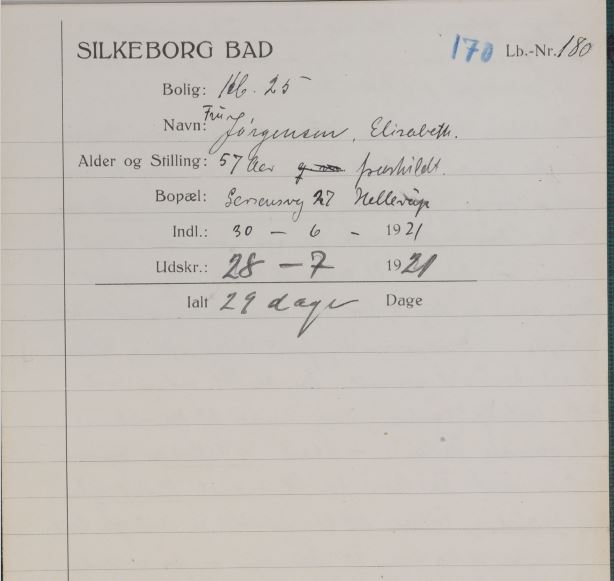 SILKEBORG BAD 170 Lb.-Nr. 180
Bolig: Hb. 25
Navn: Fru Jørgensen, Elisabeth.
Alder og Stilling: 57 Aar fraskildt.
Bopæl: 27 Hellerup
Indl.: 30 - 6 - 1921
Udskr.: 28 - 7 1921
Ialt 29 dage Dage